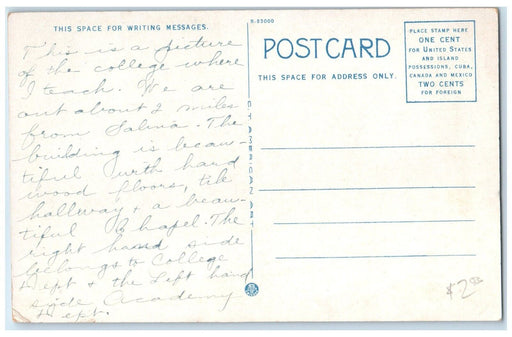 THIS SPACE FOR WRITING MESSAGES.
This is a picture
of the college where
I teach. We are
out about 2 miles
from Salina. The
building is beau-
tiful with hard
wood floors, tile
hallway & a beau-
tiful Chapel. The
right hand side
belongs to College
Dept & the Left hand
side Academy
Dept.
R-53000
POST CARD
THIS SPACE FOR ADDRESS ONLY.
PLACE STAMP HERE
ONE CENT
FOR UNITED STATES
AND ISLAND
POSSESSIONS, CUBA,
CANADA AND MEXICO
TWO CENTS
FOR FOREIGN
$2